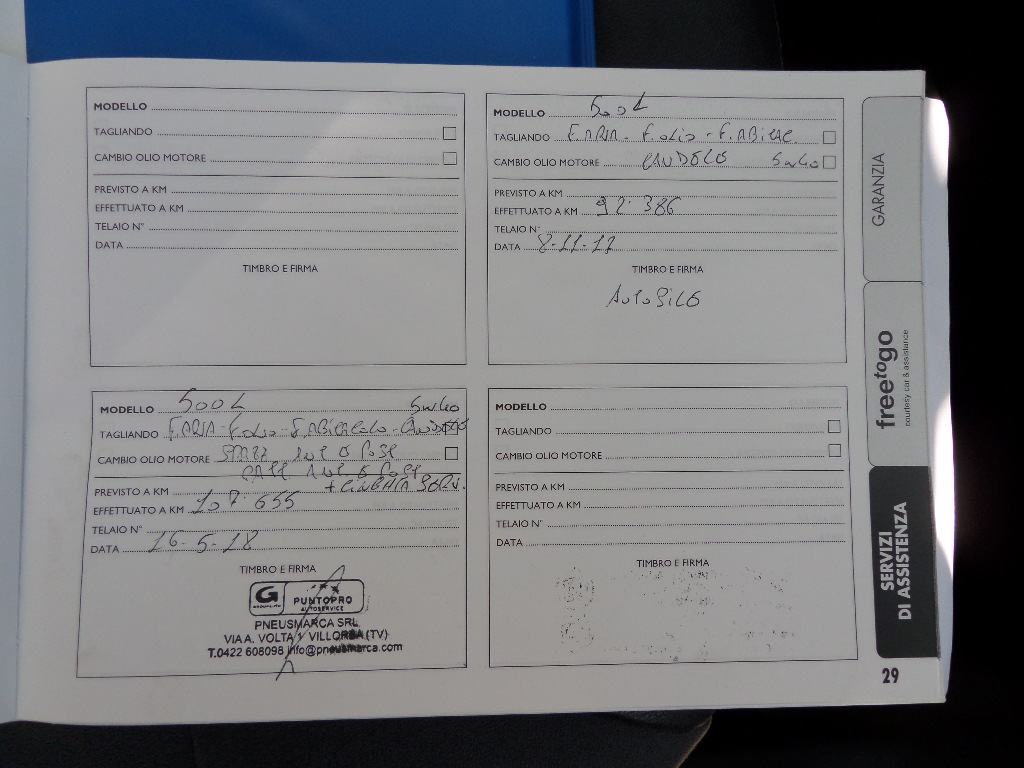 MODELLO
TAGLIANDO
CAMBIO OLIO MOTORE
PREVISTO A KM
EFFETTUATO A KM
TELAIO N°
DATA
TIMBRO E FIRMA
MODELLO 500L
TAGLIANDO F.ARIA - F.OLIO - F.ABITAC
CAMBIO OLIO MOTORE 5W40
PREVISTO A KM
EFFETTUATO A KM 92.386
TELAIO N°
DATA 8-11-17
TIMBRO E FIRMA
MODELLO 500L 5W40
TAGLIANDO F.ARIA - F.OLIO - F.ABITACOLO
CAMBIO OLIO MOTORE
PREVISTO A KM
EFFETTUATO A KM 107.655
TELAIO N°
DATA 16-5-18
TIMBRO E FIRMA
G PUNTOPRO
AUTOSERVICE
PNEUSMARCA SRL
VIA A. VOLTA 1 VILLORBA (TV)
T.0422 608098 info@pneusmarca.com
MODELLO
TAGLIANDO
CAMBIO OLIO MOTORE
PREVISTO A KM
EFFETTUATO A KM
TELAIO N°
DATA
TIMBRO E FIRMA
GARANZIA
freetogo
courtesy car & assistance
SERVIZI
DI ASSISTENZA
29